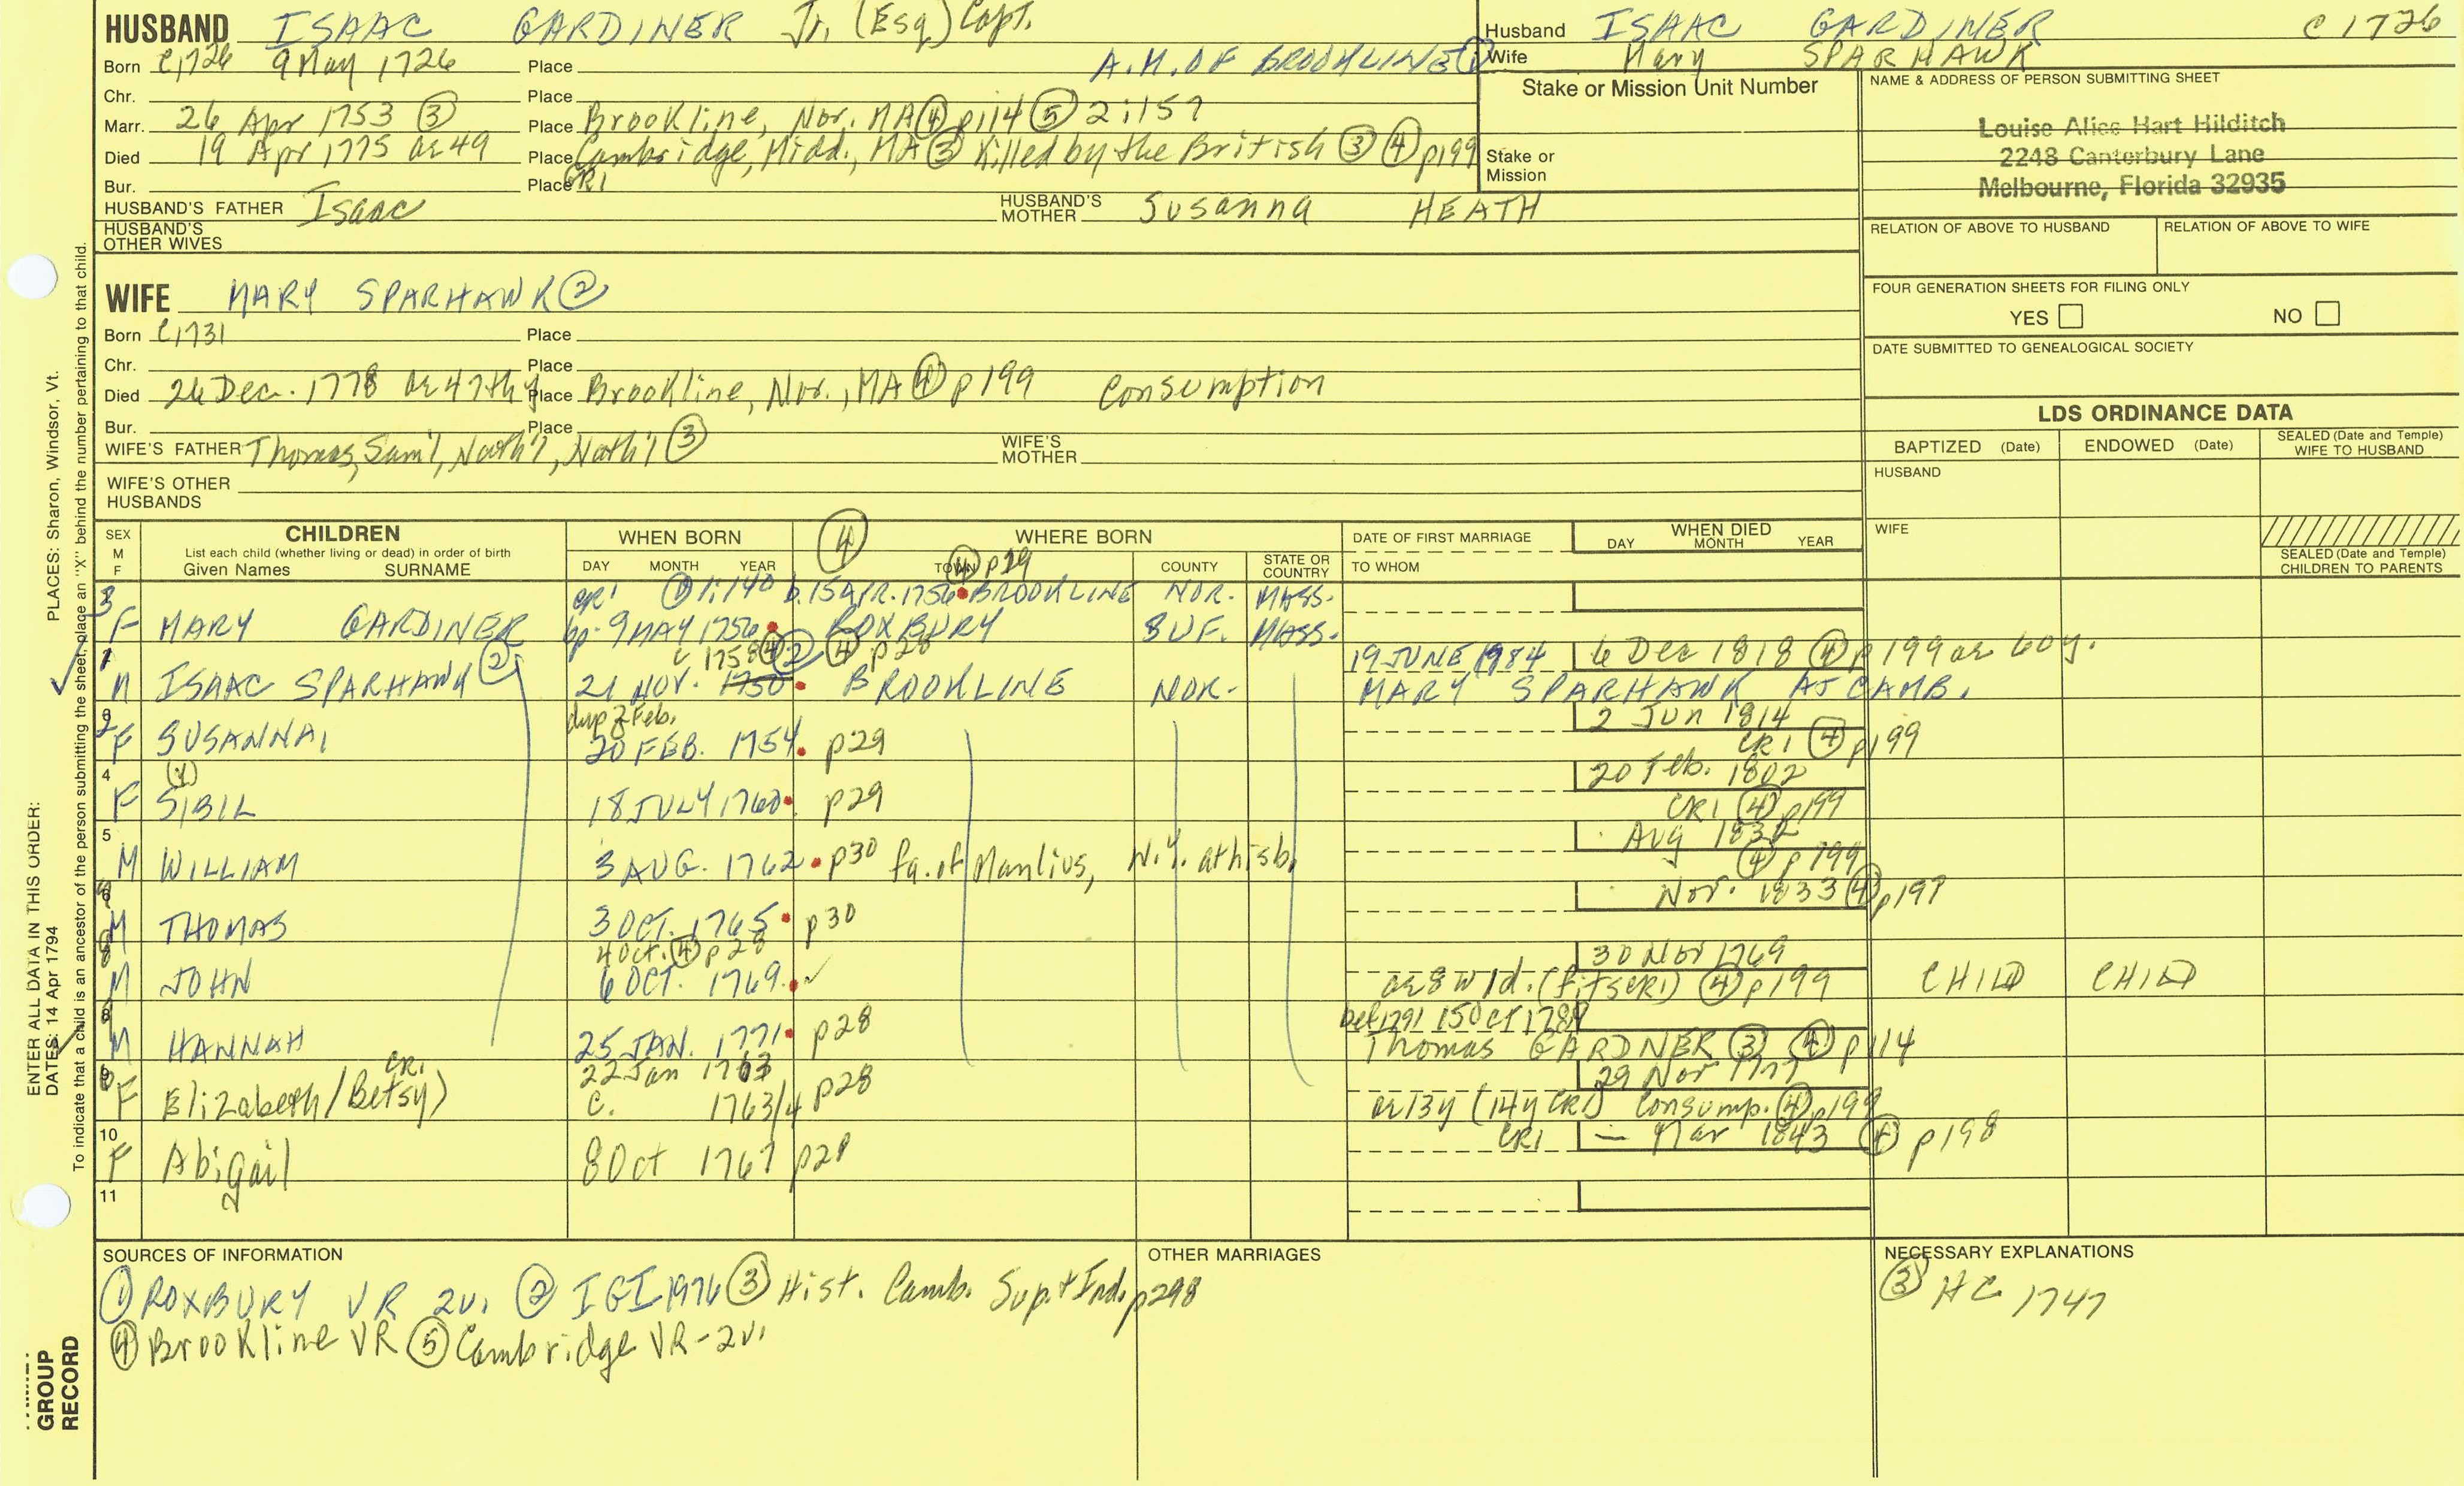 HUSBAND ISAAC GARDINER Jr. (Esq) Capt.
Born C1726 9 May 1726 Place A.M. OF BROOKLINE ①
Chr. Place
Marr. 26 Apr 1753 ③ Place Brookline, Nor. MA ④ p114 ⑤ 2:157
Died 19 Apr 1775 ae 49 Place Cambridge, Midd., MA ③ Killed by the British ③ ④ p199
Bur. Place CR1
HUSBAND'S FATHER Isaac HUSBAND'S MOTHER Susanna HEATH
HUSBAND'S OTHER WIVES
Husband ISAAC GARDINER C 1726
Wife Mary SPARHAWK
Stake or Mission Unit Number
Stake or Mission
NAME & ADDRESS OF PERSON SUBMITTING SHEET
Louise Alice Hart Hilditch
2248 Canterbury Lane
Melbourne, Florida 32935
RELATION OF ABOVE TO HUSBAND RELATION OF ABOVE TO WIFE
FOUR GENERATION SHEETS FOR FILING ONLY
YES NO
DATE SUBMITTED TO GENEALOGICAL SOCIETY
WIFE MARY SPARHAWK ②
Born C1731 Place
Chr. Place
Died 26 Dec. 1778 ae 47th y Place Brookline, Nor., MA ④ p199 Consumption
Bur. Place
WIFE'S FATHER Thomas, Sam'l, Nath'l, Nath'l ③ WIFE'S MOTHER
WIFE'S OTHER HUSBANDS
LDS ORDINANCE DATA
BAPTIZED (Date) ENDOWED (Date) SEALED (Date and Temple) WIFE TO HUSBAND
HUSBAND
WIFE
SEALED (Date and Temple) CHILDREN TO PARENTS
SEX M F CHILDREN List each child (whether living or dead) in order of birth Given Names SURNAME
WHEN BORN DAY MONTH YEAR
④ WHERE BORN TOWN ④ p29 COUNTY STATE OR COUNTRY
DATE OF FIRST MARRIAGE TO WHOM
WHEN DIED DAY MONTH YEAR
3 CR1 ① 1:140 b. 15 Apr. 1756 BROOKLINE NOR. MASS.
F MARY GARDINER bp. 9 MAY 1756 ROXBURY SUF. MASS.
1 c 1758 ④ ② ④ p28 19 JUNE 1984 6 Dec 1818 ④ p199 ae 60y.
M ISAAC SPARHAWK ② 21 NOV. 1750 BROOKLINE NOR. MARY SPARHAWK AT CAMB.
2 dup 2 Feb. 2 Jun 1814
F SUSANNA 20 FEB. 1754 p29 CR1 ④ p199
4 (y) 20 Feb. 1802
F SIBIL 18 JULY 1760 p29 CR1 ④ p199
5 Aug 1832
M WILLIAM 3 AUG. 1762 p30 fa. of Manlius, N.Y. at his b. ④ p199
6 Nov. 1833 ④ p197
M THOMAS 3 OCT. 1765 p30
4 Oct. ④ p28 30 Nov 1769
M JOHN 6 OCT. 1769 ae 8 w 1d. (fits CR1) ④ p199 CHILD CHILD
8 bef 1791 15 Oct 1789
M HANNAH 25 JAN. 1771 p28 Thomas GARDNER ③ ④ p114
9 CR1 22 Jan 1763 29 Nov 1777
F Elizabeth/Betsy) c. 1763/4 p28 ae 13y (14y CR1) Consump. ④ p199
10 CR1 — Mar 1843 ④ p198
F Abigail 8 Oct 1767 p28
11
SOURCES OF INFORMATION
① ROXBURY VR 2v. ② IGI 1976 ③ Hist. Camb. Sup. + Ind. p298
④ Brookline VR ⑤ Cambridge VR-2v.
OTHER MARRIAGES
NECESSARY EXPLANATIONS
③ HC 1747
ENTER ALL DATA IN THIS ORDER:
DATES: 14 Apr 1794 PLACES: Sharon, Windsor, Vt.
To indicate that a child is an ancestor of the person submitting the sheet, place an "X" behind the number pertaining to that child.
GROUP
RECORD